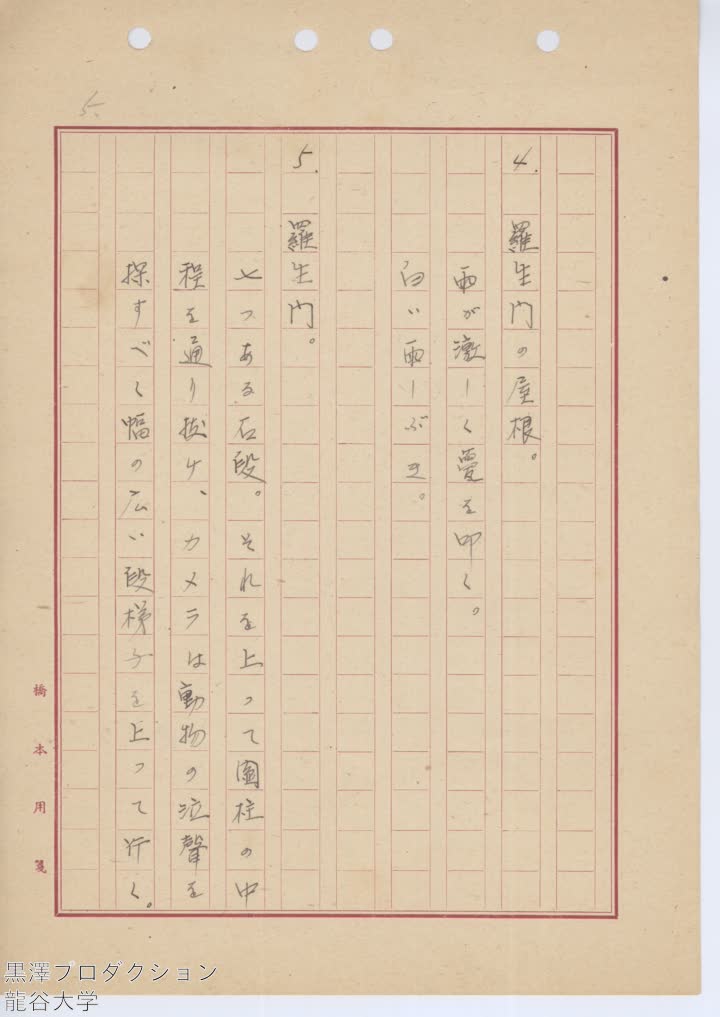 5.
4. 羅生門の屋根。
雨が激しく甍を叩く。
白い雨しぶき。
5. 羅生門。
七つある石段。それを上って圓柱の中
程を通り抜け、カメラは動物の泣聲を
探すべく幅の広い段梯子を上って行く。
橋本用箋
黒澤プロダクション
龍谷大学